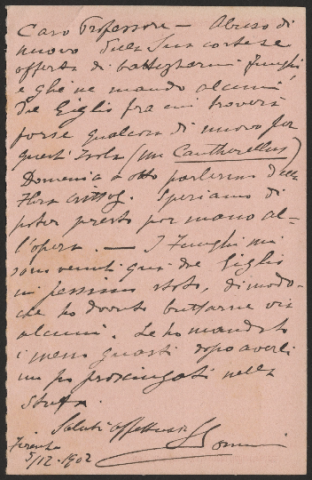 Caro Professore — Abuso di
nuovo della Sua cortese
offerta di battezzarmi funghi
e gliene mando alcuni
del Giglio fra cui troverà
forse qualcosa di nuovo per
quest'isola (un Cantharellus)
Domenica a otto parleremo della
Flora crittog. Speriamo di
poter presto por mano al-
l'opera. — I Funghi mi
sono venuti qui dal Giglio
in pessimo stato, dimodo-
che ho dovuto buttarne via
alcuni. Le ho mandato
i meno guasti dopo averli
un po prosciugati nella
stufa.
Saluti affettuosi
Firenze
5/12-1902